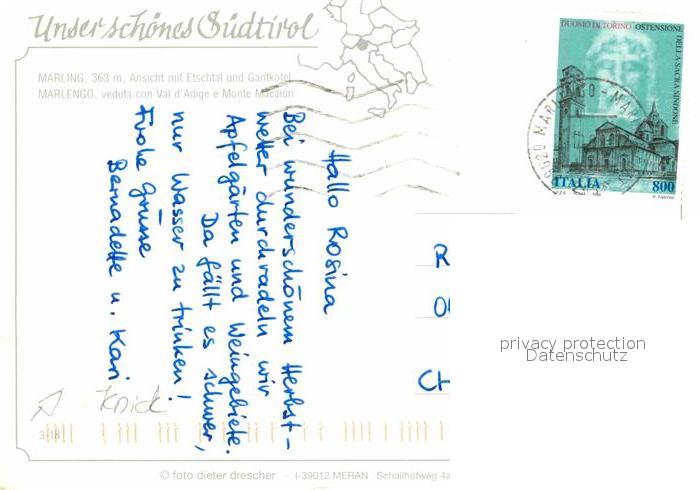 Unser schönes Südtirol
MARLING, 363 m. Ansicht mit Etschtal und Gantkofel
MARLENGO, veduta con Val d'Adige e Monte Macaion
Hallo Rosina
Bei wunderschönem Herbst-
wetter durchradeln wir
Apfelgärten und Weingebiete.
Da fällt es schwer,
nur Wasser zu trinken!
Frohe Grüsse
Bernadette u. Kari
Knick
3-18
© foto dieter drescher · I-39012 MERAN Schallhofweg 4a
DUOMO DI TORINO OSTENSIONE
DELLA SACRA SINDONE
ITALIA 800
R
CH
privacy protection
Datenschutz